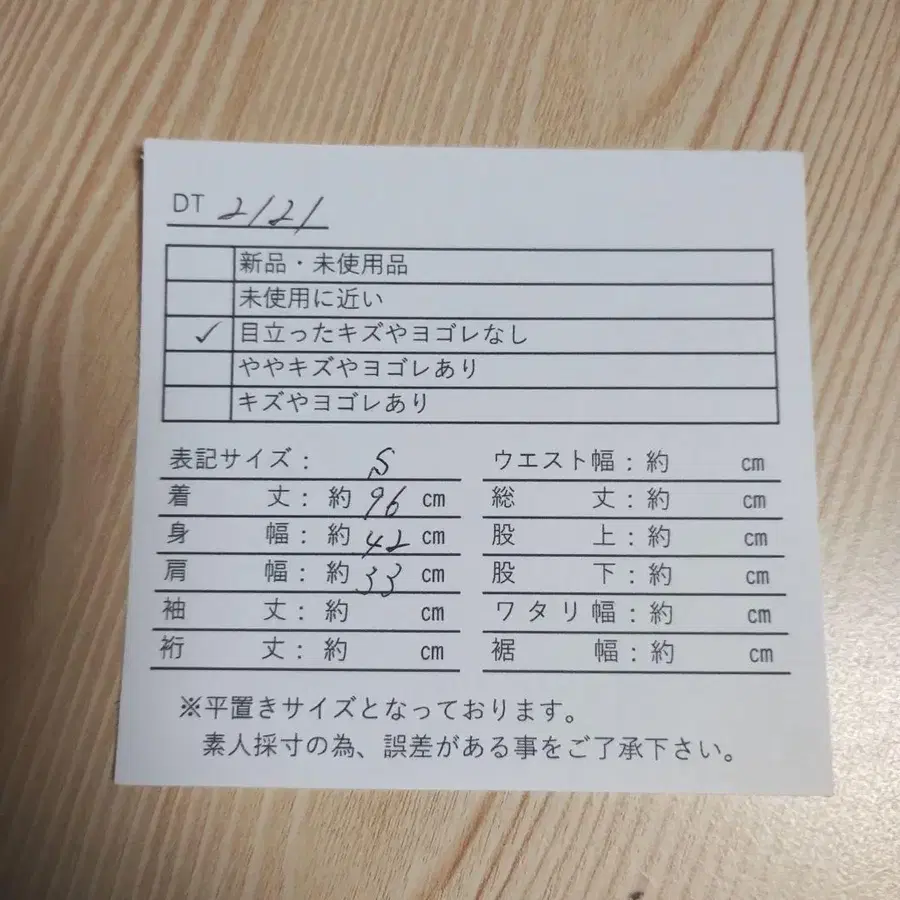 DT 2121
新品・未使用品
未使用に近い
✓ 目立ったキズやヨゴレなし
ややキズやヨゴレあり
キズやヨゴレあり
表記サイズ： S
着丈：約 96 cm
身幅：約 42 cm
肩幅：約 33 cm
袖丈：約 cm
裄丈：約 cm
ウエスト幅：約 cm
総丈：約 cm
股上：約 cm
股下：約 cm
ワタリ幅：約 cm
裾幅：約 cm
※平置きサイズとなっております。
素人採寸の為、誤差がある事をご了承下さい。